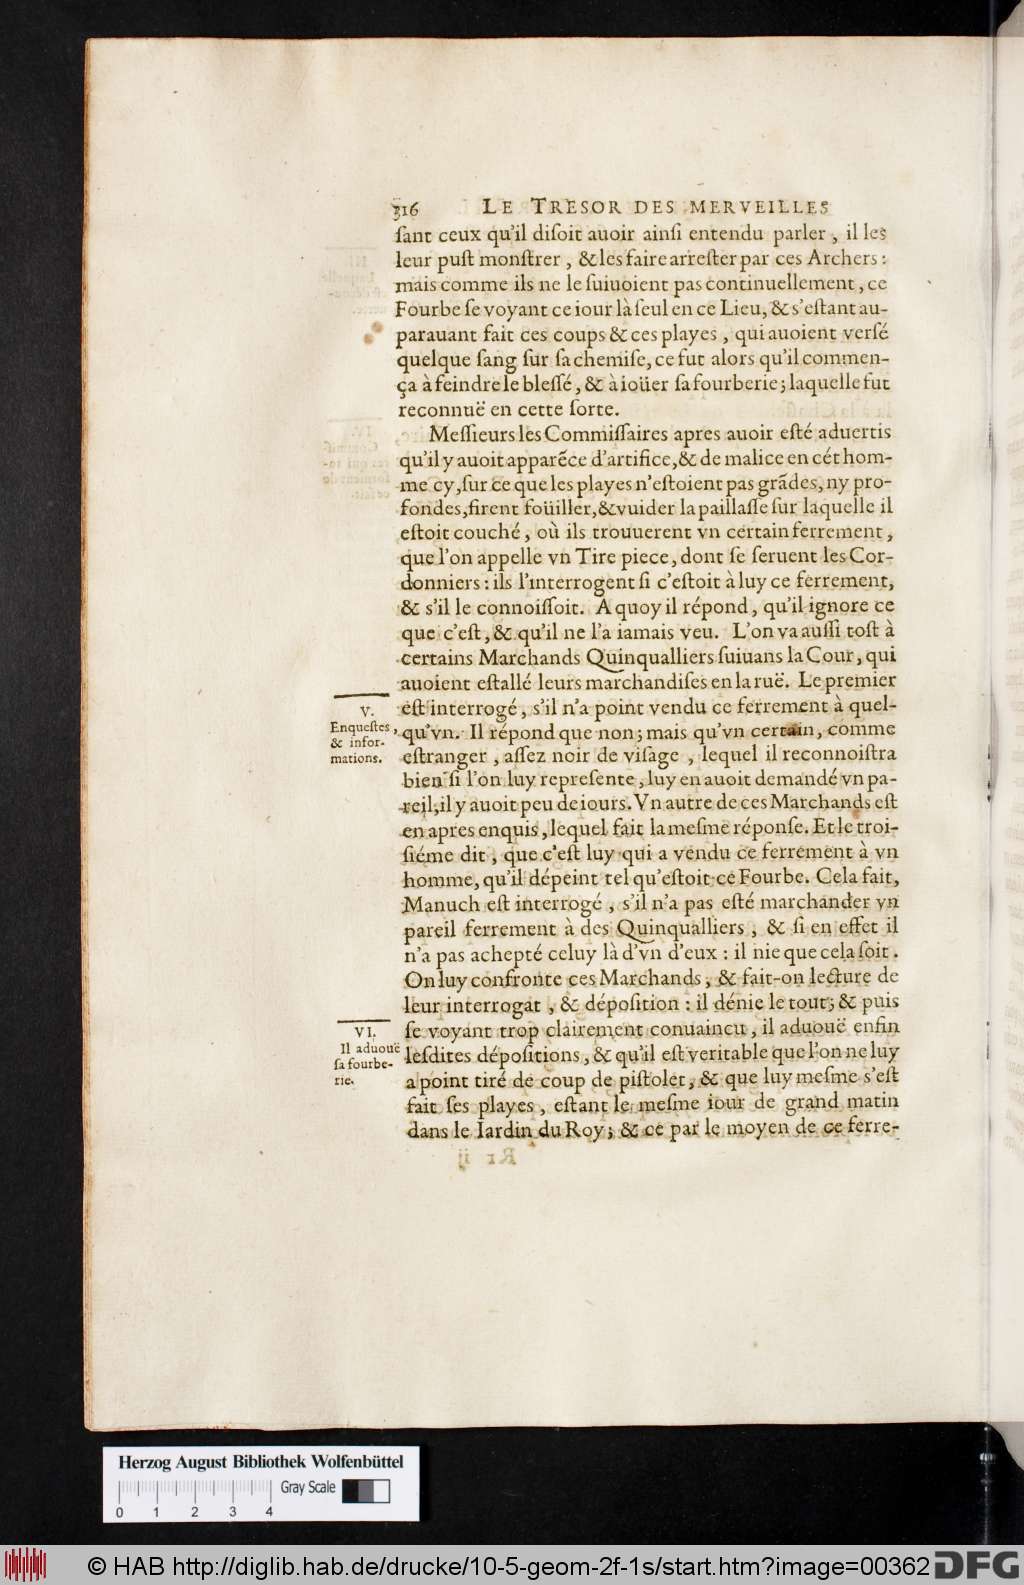 316 LE TRESOR DES MERVEILLES
ſant ceux qu'il diſoit auoir ainſi entendu parler, il les
leur puſt monſtrer, & les faire arreſter par ces Archers:
mais comme ils ne le ſuiuoient pas continuellement, ce
Fourbe ſe voyant ce iour là ſeul en ce Lieu, & s'eſtant au-
parauant fait ces coups & ces playes, qui auoient verſé
quelque ſang ſur ſa chemiſe, ce fut alors qu'il commen-
ça à feindre le bleſſé, & à ioüer ſa fourberie; laquelle fut
reconnuë en cette ſorte.
Meſſieurs les Commiſſaires apres auoir eſté aduertis
qu'il y auoit apparẽce d'artifice, & de malice en cét hom-
me cy, ſur ce que les playes n'eſtoient pas grãdes, ny pro-
fondes, firent foüiller, & vuider la paillaſſe ſur laquelle il
eſtoit couché, où ils trouuerent vn certain ferrement,
que l'on appelle vn Tire piece, dont ſe ſeruent les Cor-
donniers: ils l'interrogent ſi c'eſtoit à luy ce ferrement,
& s'il le connoiſſoit. A quoy il répond, qu'il ignore ce
que c'eſt, & qu'il ne l'a iamais veu. L'on va auſſi toſt à
certains Marchands Quinqualliers ſuiuans la Cour, qui
auoient eſtallé leurs marchandiſes en la ruë. Le premier
V.
Enqueſtes
& infor-
mations.
eſt interrogé, s'il n'a point vendu ce ferrement à quel-
qu'vn. Il répond que non; mais qu'vn certain, comme
eſtranger, aſſez noir de viſage, lequel il reconnoiſtra
bien ſi l'on luy repreſente, luy en auoit demandé vn pa-
reil, il y auoit peu de iours. Vn autre de ces Marchands eſt
en apres enquis, lequel fait la meſme réponſe. Et le troi-
ſiéme dit, que c'eſt luy qui a vendu ce ferrement à vn
homme, qu'il dépeint tel qu'eſtoit ce Fourbe. Cela fait,
Manuch eſt interrogé, s'il n'a pas eſté marchander vn
pareil ferrement à des Quinqualliers, & ſi en effet il
n'a pas achepté celuy là d'vn d'eux: il nie que cela ſoit.
On luy confronte ces Marchands, & fait-on lecture de
leur interrogat, & dépoſition: il dénie le tout; & puis
VI.
Il aduouë
ſa fourbe-
rie.
ſe voyant trop clairement conuaincu, il aduouë enfin
leſdites dépoſitions, & qu'il eſt veritable que l'on ne luy
a point tiré de coup de piſtolet, & que luy meſme s'eſt
fait ſes playes, eſtant le meſme iour de grand matin
dans le Iardin du Roy; & ce par le moyen de ce ferre-
Herzog August Bibliothek Wolfenbüttel
Gray Scale
0 1 2 3 4
© HAB http://diglib.hab.de/drucke/10-5-geom-2f-1s/start.htm?image=00362 DFG